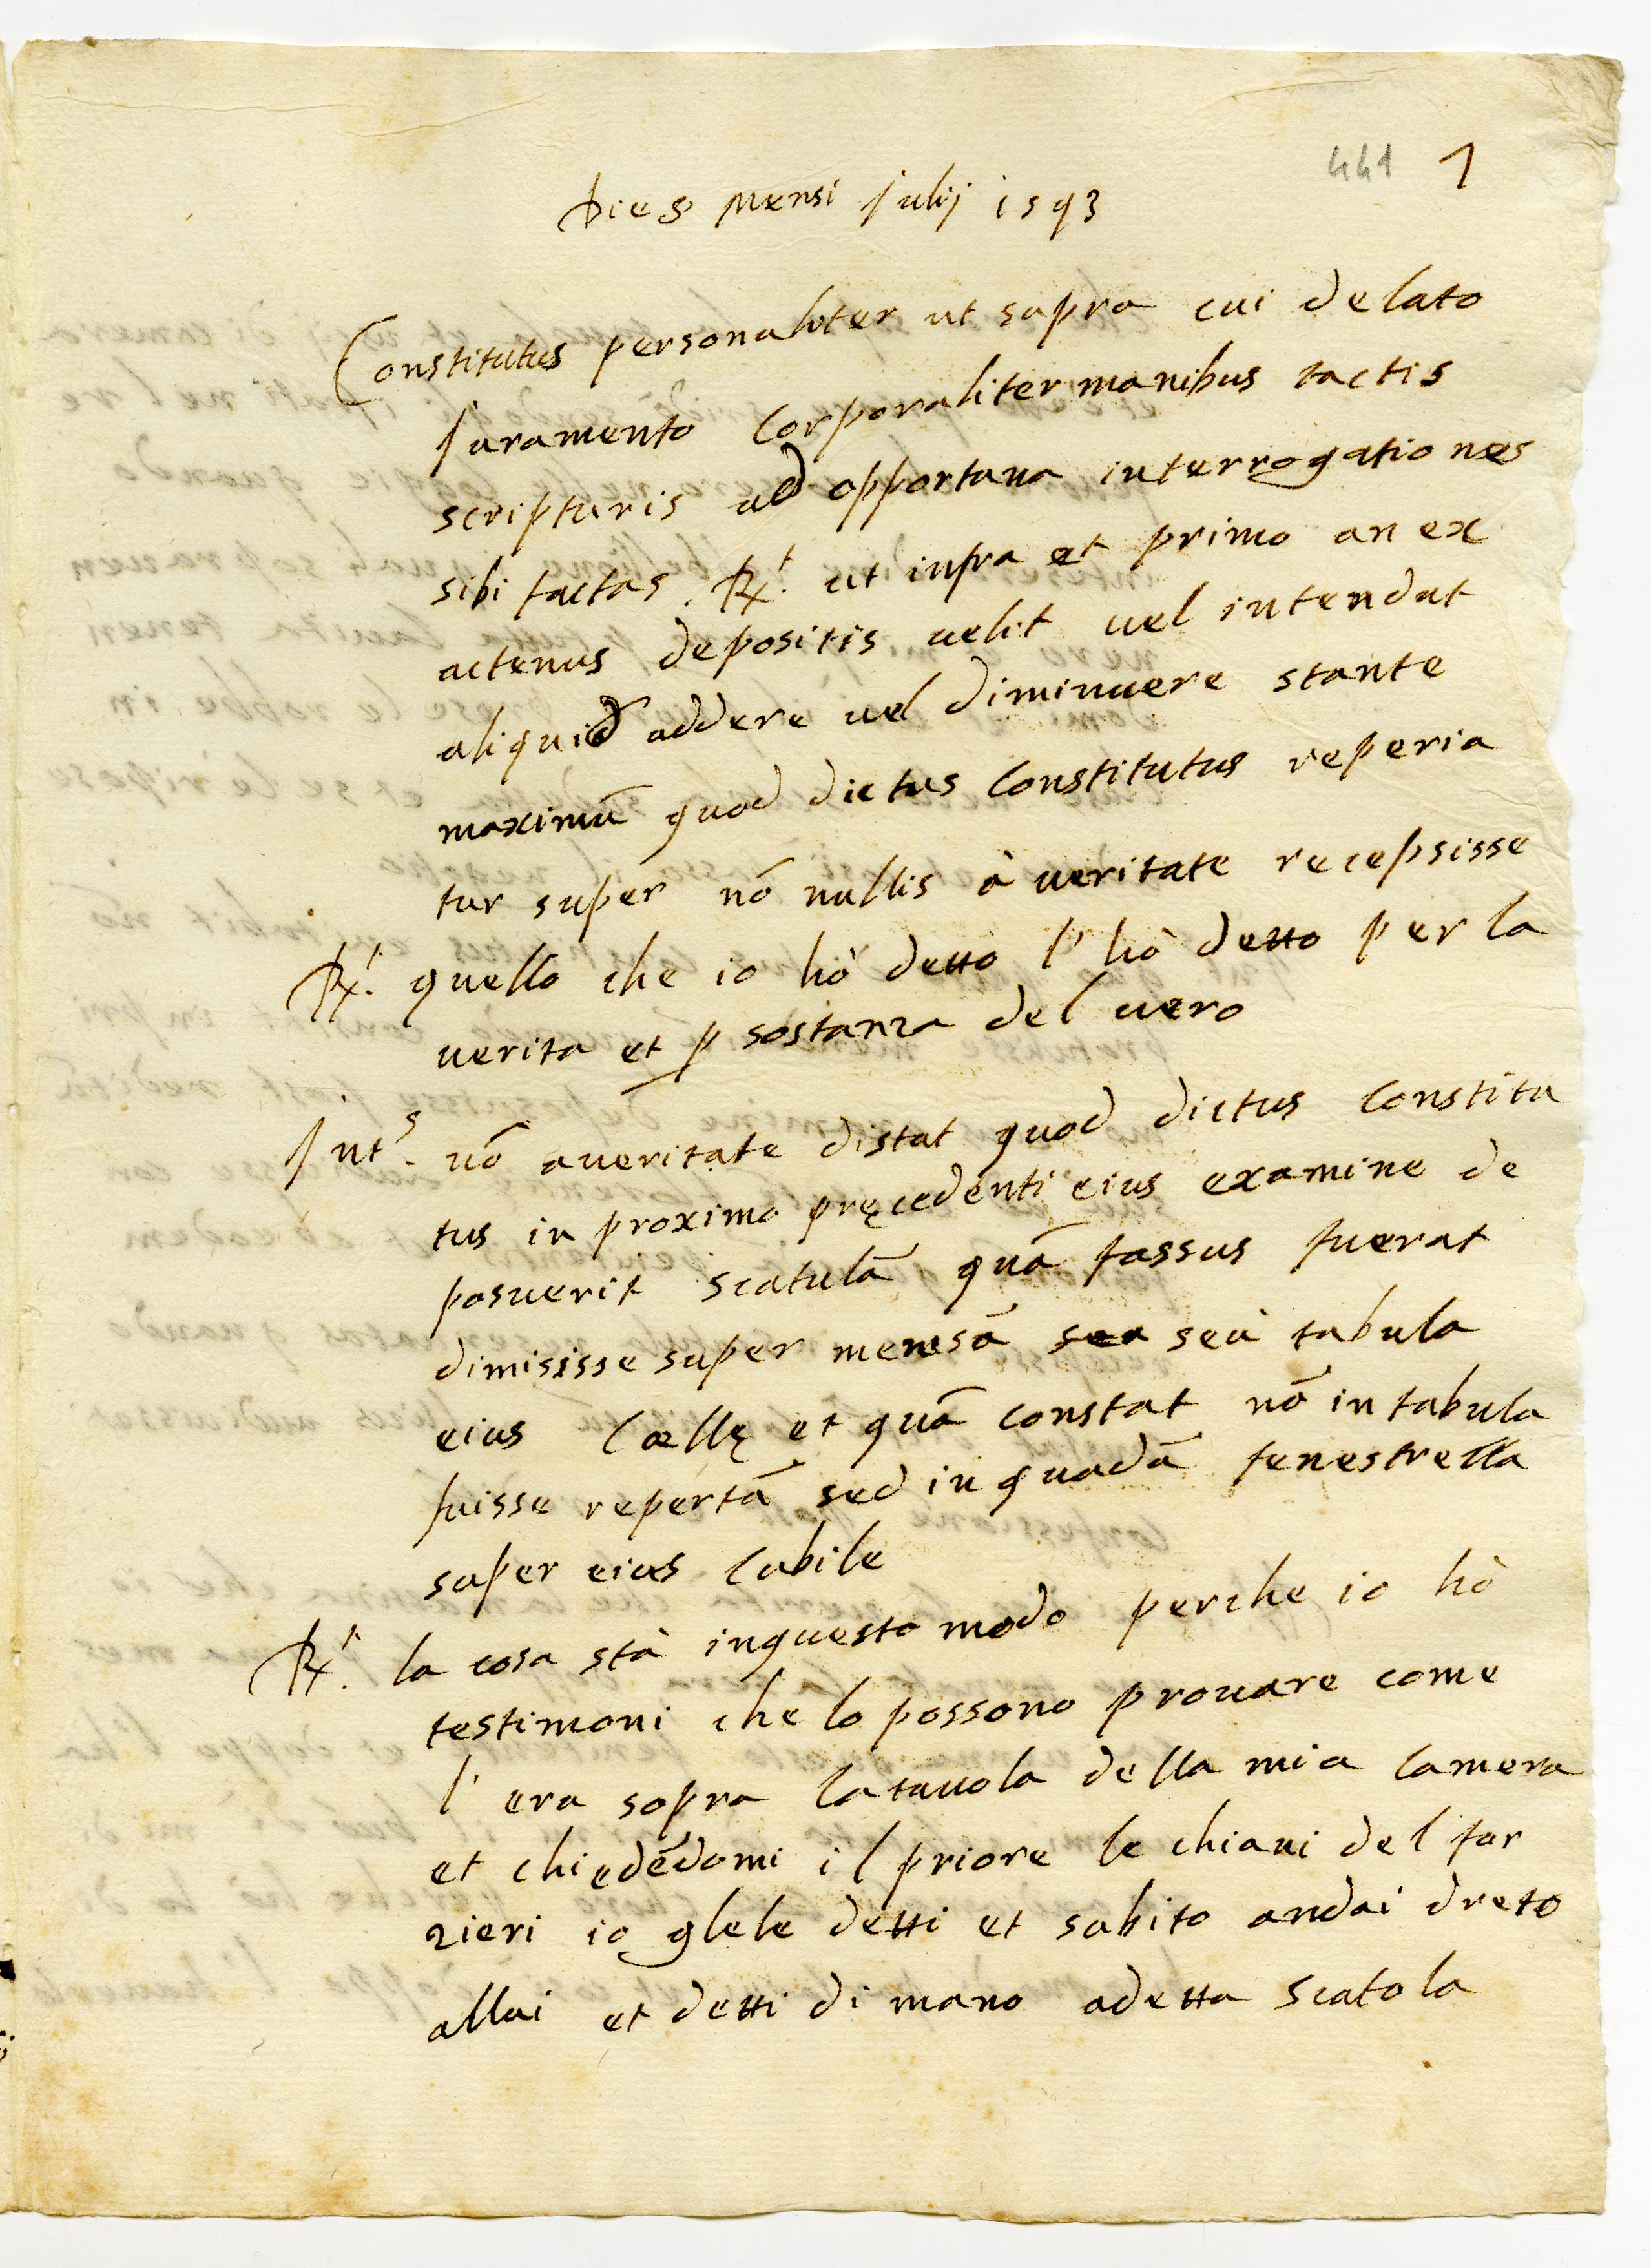 441 1
Die 8 Mensi Julij 1593
Constitutus personaliter ut supra cui delato
Juramento Corporaliter manibus tactis
scripturis ad opportuna interrogationes
sibi factas. Rx.t ut infra et primo an ex
actenus depositis uelit uel intendat
aliquid addere uel diminuere stante
maximũ quod dictus Constitutus reperia
tur super nõ nullis à ueritate recepsisse
Rx.t quello che io hò detto l' hò detto per la
uerita et ꝑ sostanza del uero
Int.s nõ aueritate distat quod dictus Constitu
tus in proximo pręcedenti eius examine de
posuerit scatulã quã fassus fuerat
dimisisse super mensã sea seù tabula
eius Cællę et quã constat nõ in tabula
fuisse repertã sed in quadã fenestrella
super eius Cubile
Rx.t la cosa stà inquesto modo perche io hò
testimoni che lo possono prouare come
l' era sopra latauola della mia Camera
et chiedẽdomi il priore le chiaui del for
zieri io glele detti et subito andai dreto
allui et detti di mano adetta scatola